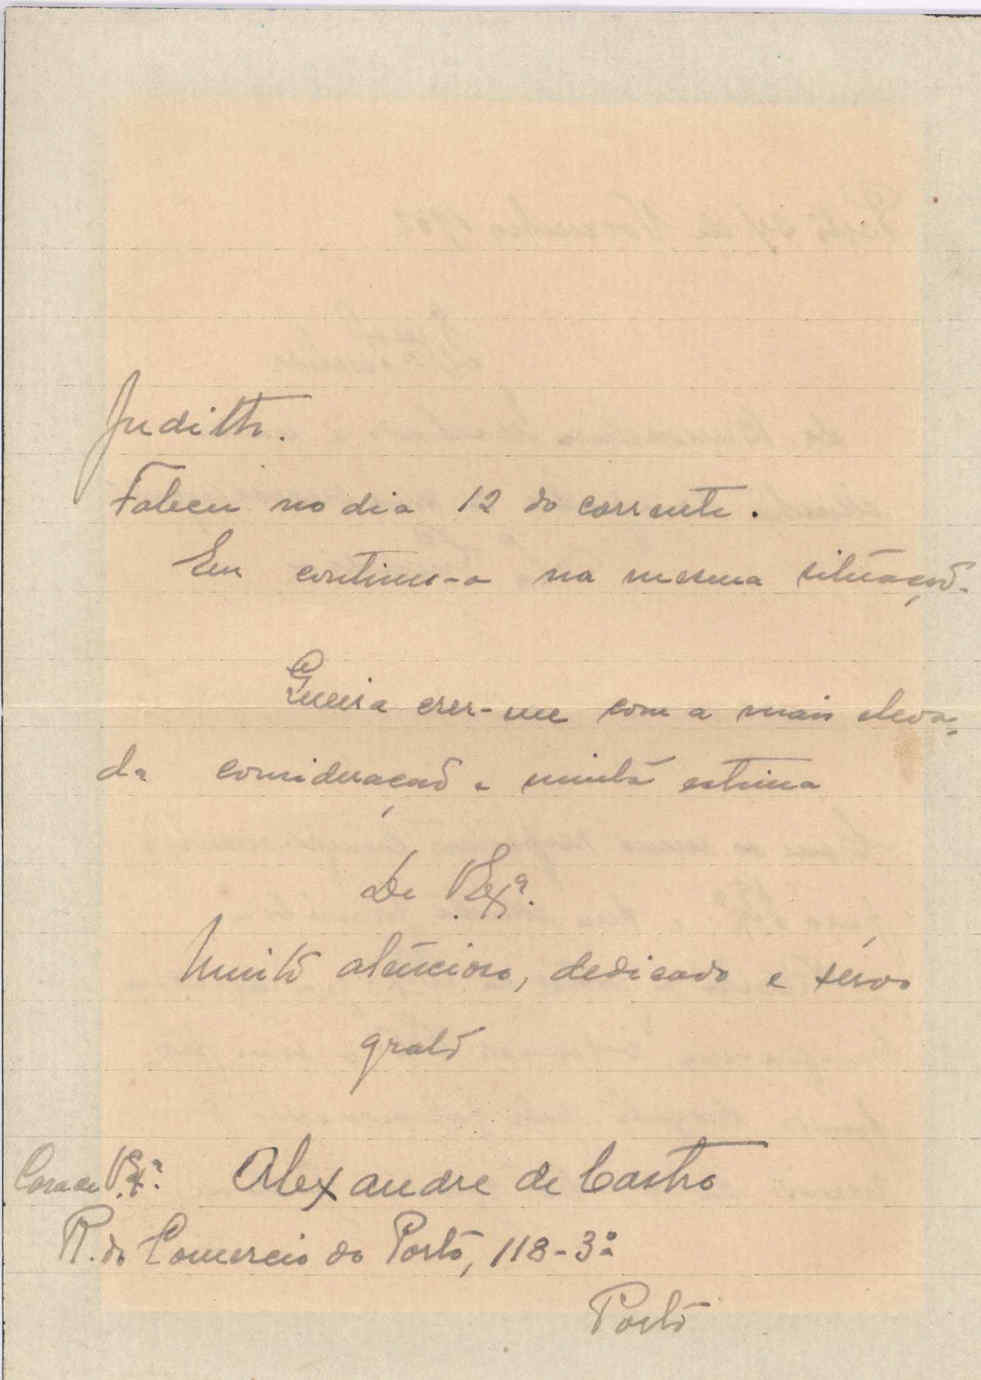 Judith.
Faleceu no dia 12 do corrente.
Eu continuo-a na mesma situação.
Queira crer-me com a mais eleva-
da consideração e muita estima
De V. Exª.
Muito atencioso, dedicado e servo
grato
Casa de V. Exª. Alexandre de Castro
R. do Comercio do Porto, 118-3º
Porto